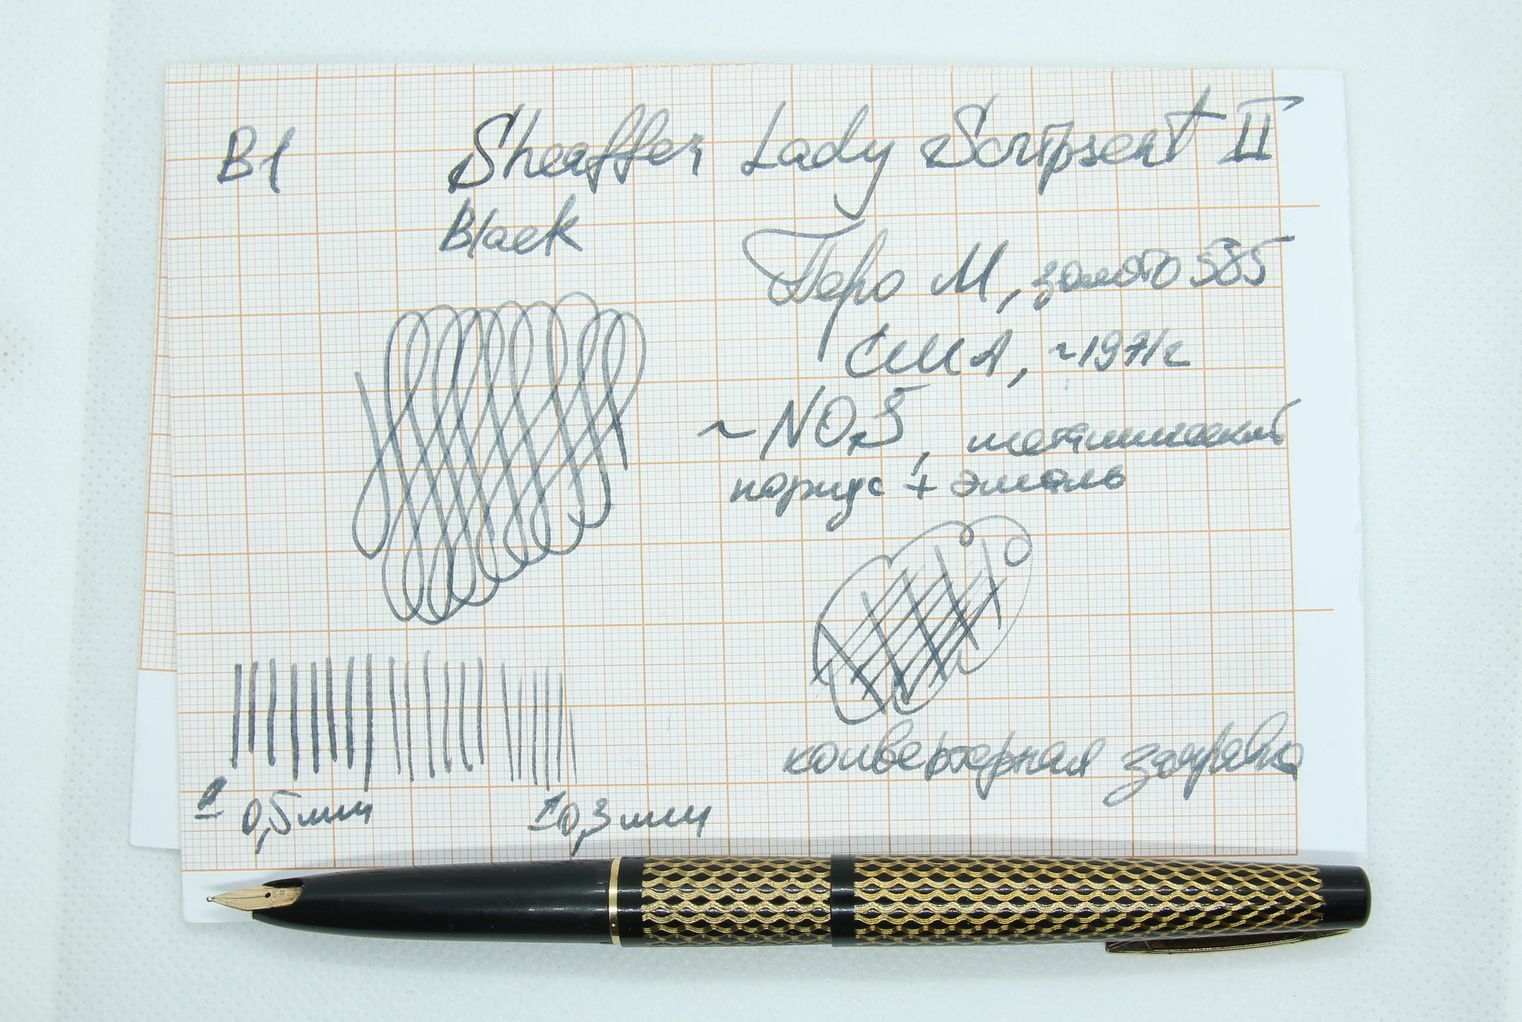 B1 Sheaffer Lady Scripsert II
Black
Перо М, золото 585
США, ~1971г
~ NOS, металлический
корпус + эмаль
конвертерная заправка
± 0,5мм ±0,3мм